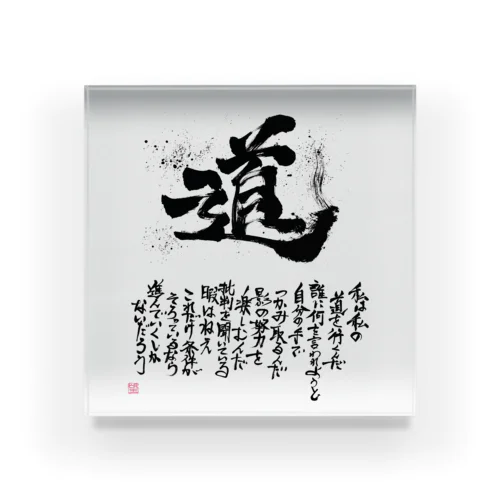 道
私は私の
道を行くんだ
誰に何を言われようと
自分の手で
つかみ取るんだ
影の努力を
楽しむんだ
批判を聞いている
暇はねえ
これだけ条件が
そろっているなら
進んでいくしか
ないだろう